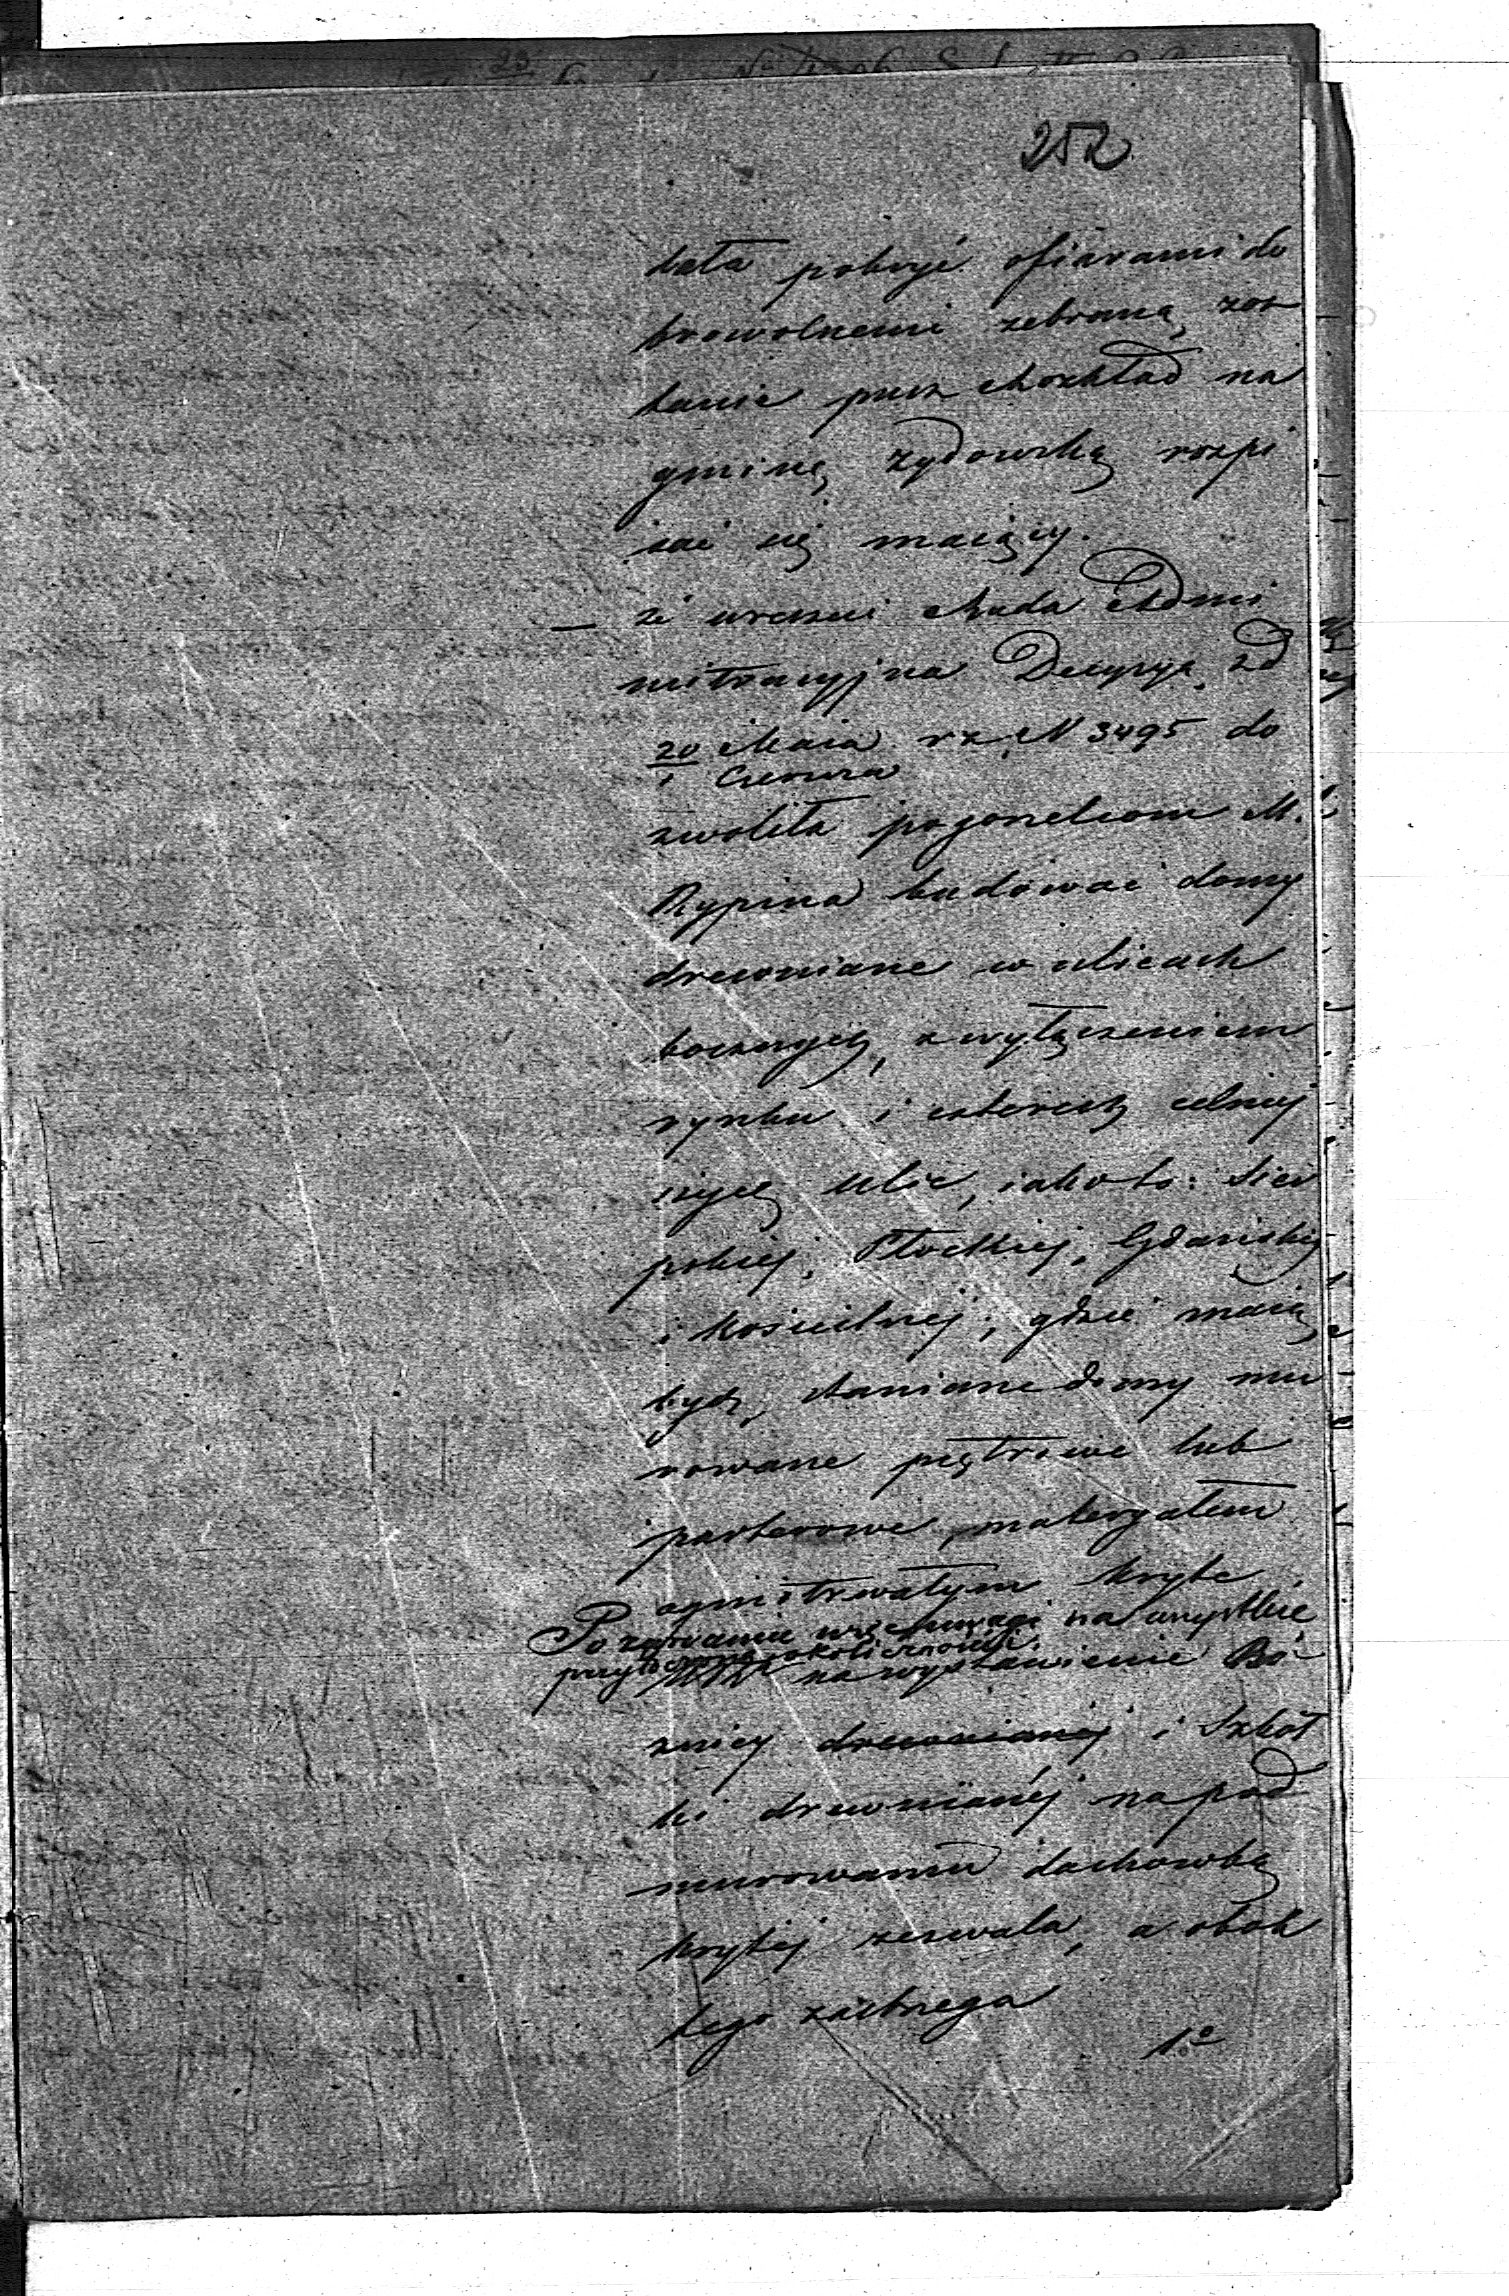 252
bała pokryć ofiarami do
browolnemi zebraną zos
tanie przez Rozkład na
gminę żydowską rozpi
sać się maiący.
— że wreszcie Rada Admi
nistracyjna Decyzyą z d
20 Maia r. z. N 3495 do
1 Czerwca
zwoliła pogorzelcom M.
Rypina budować domy
drewniane w ulicach
bocznych, z wyłączeniem
rynku i czterech celniej
szych ulic, iako to: Sier
pskiej, Płockiej, Gdańskiej
i Kościelnej, gdzie maią
bydź stawiane domy mu
rowane piętrowe lub
parterowe, materyałem
ogniotrwałym kryte
Po wzięciu uwagi na wszystkie
przytoczone okoliczności
na wystawienie Bó
żnicy drewnianej i Szkół
ki drewnianéj na pod
murowaniu dachówką
krytej zezwala, a obok
tego zaś
1º